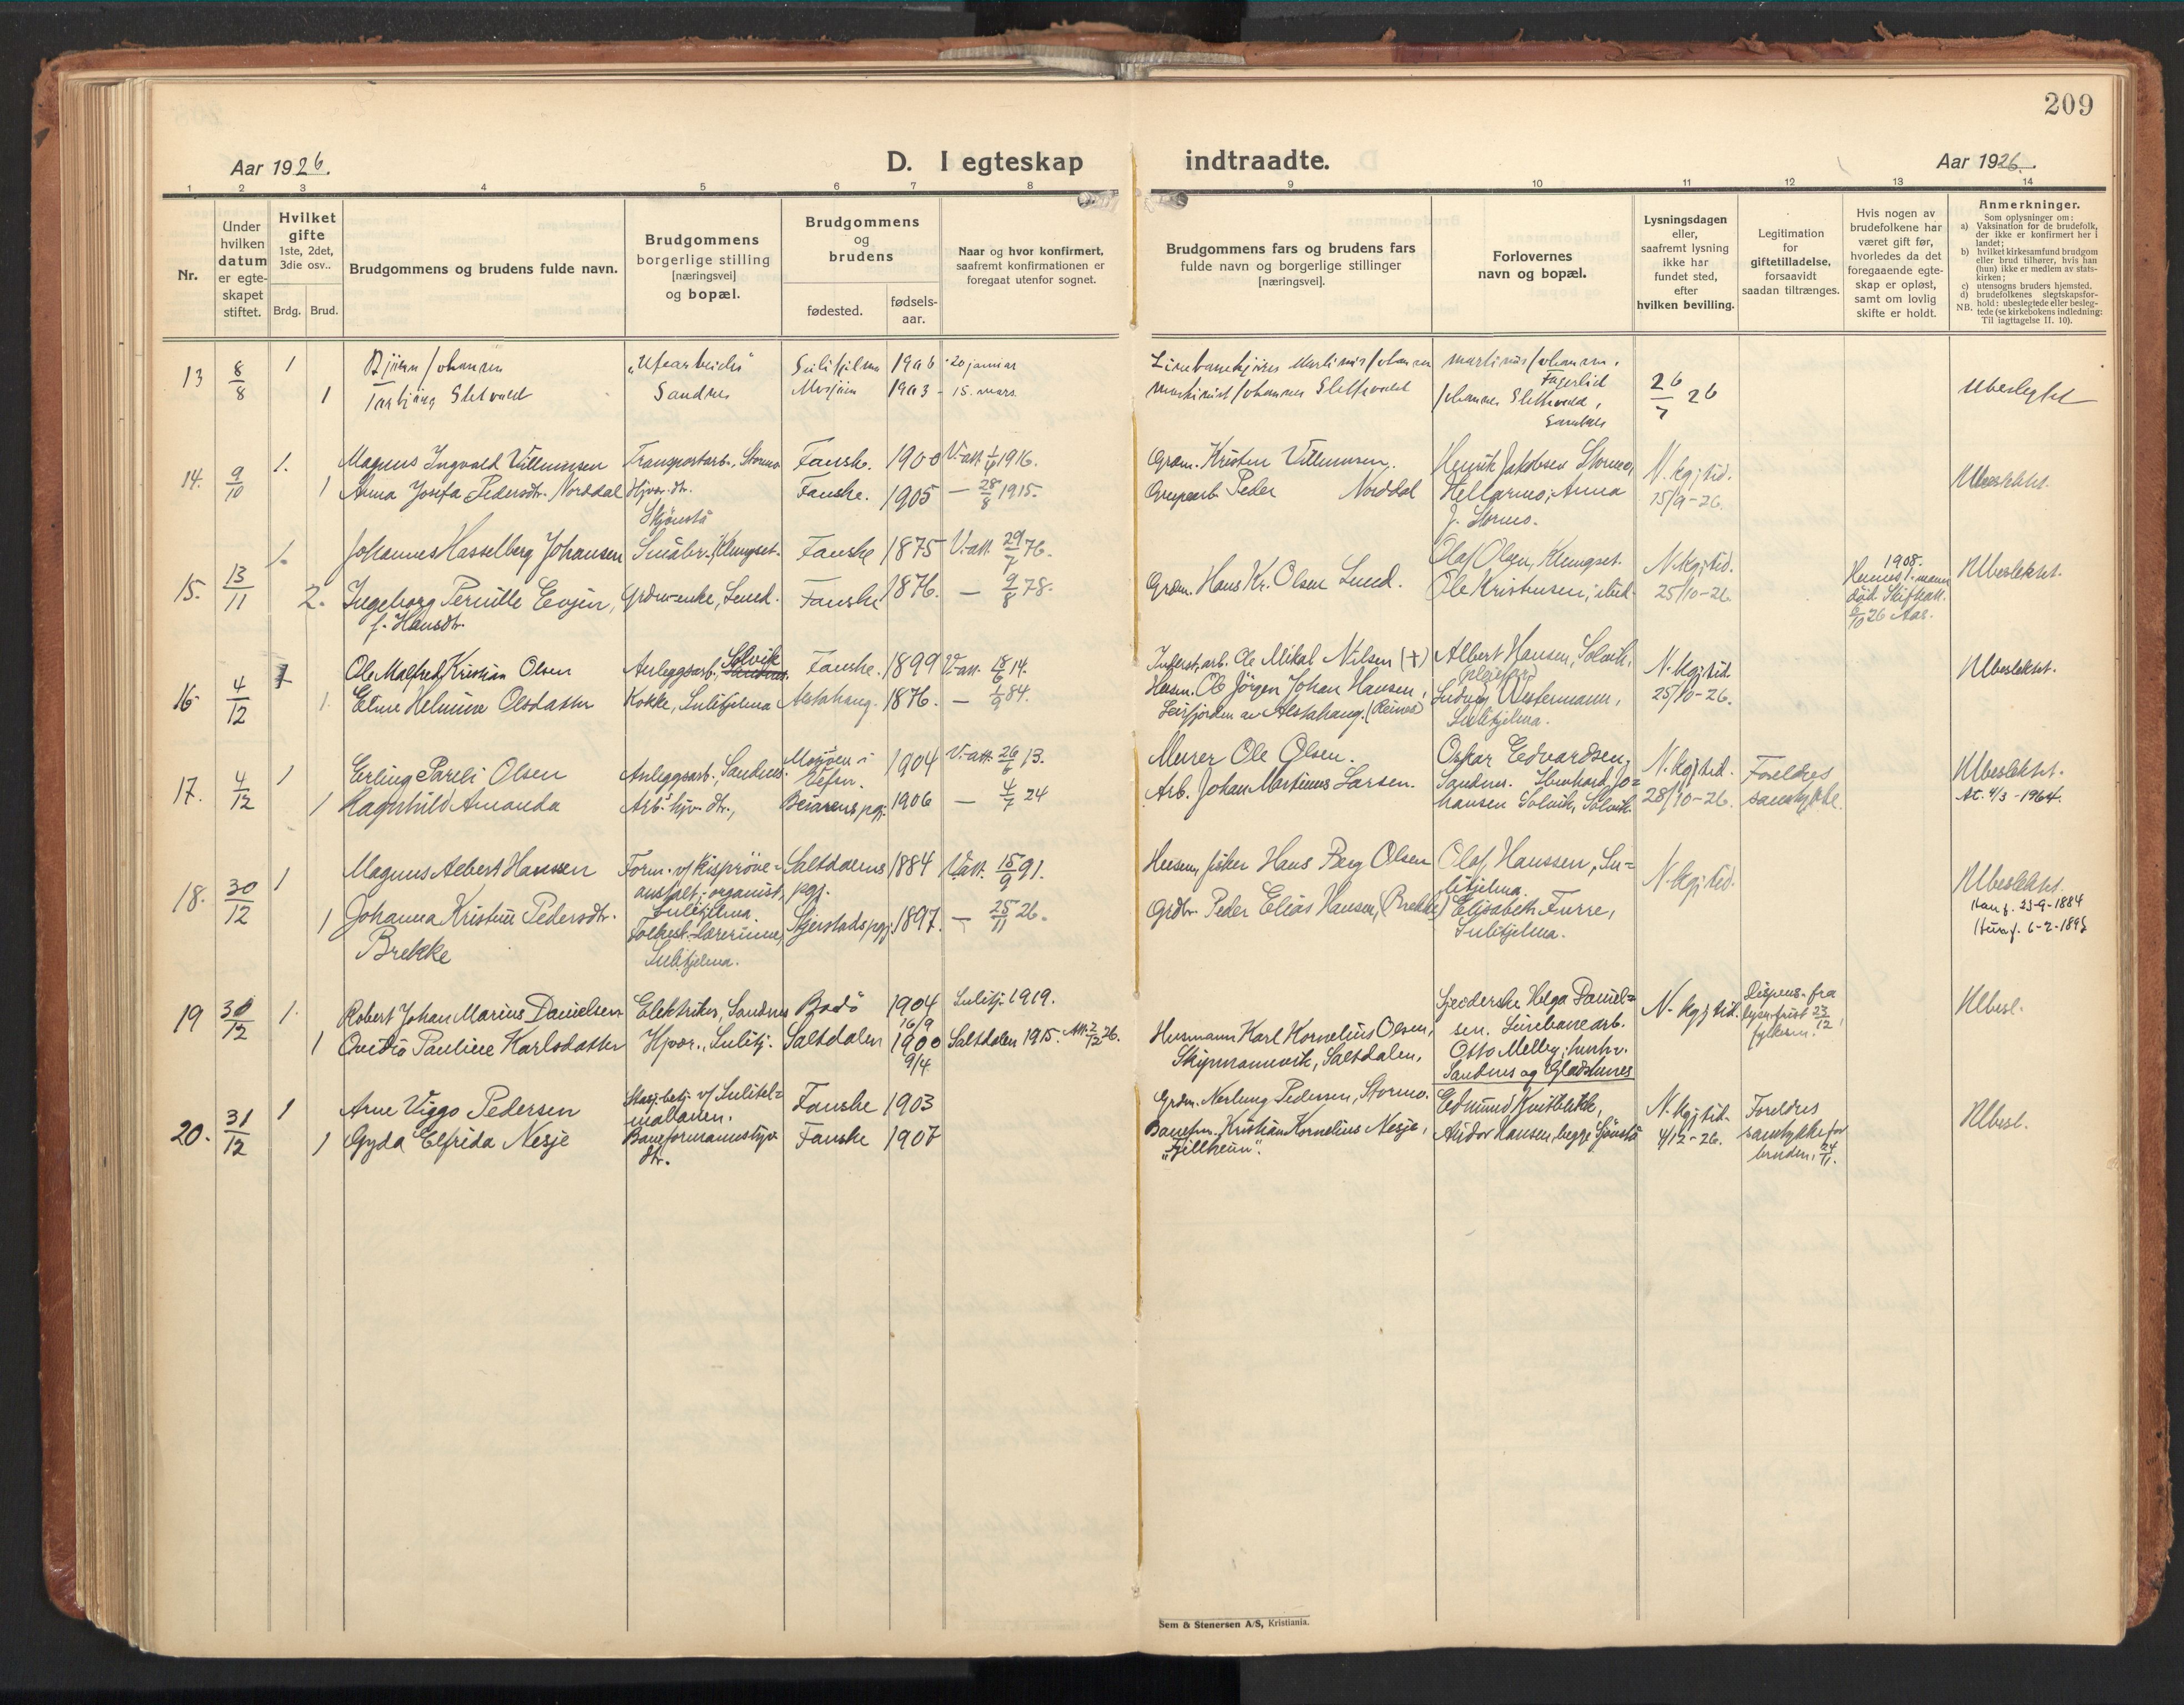 209
Aar 1926.
D. I egteskap indtraadte.
Aar 1926.
1 2 3 4 5 6 7 8 9 10 11 12 13 14
Nr.
Under hvilken datum er egteskapet stiftet.
Hvilket gifte
1ste, 2det, 3die osv..
Brdg. Brud.
Brudgommens og brudens fulde navn.
Brudgommens borgerlige stilling [næringsvei] og bopæl.
Brudgommens og brudens
fødested.
fødselsaar.
Naar og hvor konfirmert, saafremt konfirmationen er foregaat utenfor sognet.
Brudgommens fars og brudens fars fulde navn og borgerlige stillinger [næringsvei].
Forlovernes navn og bopæl.
Lysningsdagen eller, saafremt lysning ikke har fundet sted, efter hvilken bevilling.
Legitimation for giftetilladelse, forsaavidt saadan tiltrænges.
Hvis nogen av brudefolkene har været gift før, hvorledes da det foregaaende egteskap er opløst, samt om lovlig skifte er holdt.
Anmerkninger.
Som oplysninger om:
a) Vaksination for de brudefolk, der ikke er konfirmert her i landet;
b) hvilket kirkesamfund brudgom eller brud tilhører, hvis han (hun) ikke er medlem av statskirken;
c) utensogns bruders hjemsted.
d) brudefolkenes slegtskapsforhold: ubeslegtede eller beslegtede (se kirkebokens indledning: Til iagttagelse II. 10).
NB.
13 8/8 1 Bjørn Johansen Sulitjelma 1906 20 januar
1 Torbjørg Sletvold Sandnes Mosjøen 1903 - 15. mars
Martinus Johansen, Fagerlid
26/7 26
Ubeslegtet
14. 9/10 1. Magnus Ingvald Villumsen Transportarb., Stormo Fauske. 1900 V.att. 1916.
1 Anna Josefa Pedersdtr. Norddal Hjvær. dtr. Skjønstå Fauske. 1905 — 28/8 1915.
Grdm. Kristen Villumsen. Henrik Jakobsen Stormo,
Peder Norddal Hellarmo; Anna J. Stormo.
N. kgj. tid. 15/9-26.
Ubeslektet.
15. 13/11 1. Johannes Hasselberg Johansen Småbr., Klungset. Fauske 1875 V.att. 29/7 76.
2. Ingeborg Pernille Evjen, f. Hansdtr. Grdm-enke, Lund. Fauske 1876. — 9/8 78.
Grdm. Hans Kr. Olsen Lund.
Olaf Olsen, Klungset. Ole Kristensen, ibid.
N. kgj. tid. 25/10-26.
1908. Hennes 1. mann død. Skifteatt. 6/10 26
Ubeslektet.
16. 4/12 1 Ole Malfred Kristian Olsen Anleggsarb., Solvik Fauske. 1899 V.att. 18/6 14.
1. Eline Helmine Olsdatter Kokke, Sulitjelma Alstahaug. 1876. — 1/9 84.
Ole Mikal Nilsen (†) Albert Hansen, Solvik,
Husm. Ole Jörgen Johan Hansen, Leirfjorden av Alstahaug. (Reines) Ludvig Westermann, Sulitjelma.
N. kgj. tid. 25/10-26.
Ubeslektet.
17. 4/12 1 Erling Pareli Olsen Anleggsarb., Sandnes. 1904 V.att. 26/6 13.
1 Ragnhild Amanda Arb.s hjv. dtr., Beiarens pgj. 1906 — 4/7 24
Murer Ole Olsen. Oskar Edvardsen, Sandnes.
Arb. Johan Martinus Larsen. Johansen Solvik, Solvik.
N. kgj. tid. 28/10-26.
Foreldres samtykke.
Ubeslektet. At. 4/3-1964.
18. 30/12 1 Magnus Albert Hanssen Form. v/ kisprøveanstalt; organist, Sulitjelma. Saltdalens pgj. 1884 V.att. 15/9 91.
1 Johanna Kristine Pedersdtr. Brekke Folkesk.-lærerinne, Sulitjelma. Skjerstads pgj. 1897. — 25/11 26.
Husm., fisker Hans Berg Olsen Olaf Hanssen, Sulitjelma.
Grdbr. Peder Elias Hansen (Brekke) Elisabeth Furre, Sulitjelma.
N. kgj. tid.
Ubeslektet.
Han f. 23-9-1884
Hun f. 6-2-1897
19 30/12 1. Robert Johan Marius Danielsen Elektriker, Sandnes Bodö 1904 16/9 Sulitj. 1919.
1 Ovidia Pauline Karlsdatter Hjvær., Sulitj. Saltdalen 1900 9/4 Saltdalen 1915. Att. 2/12 26.
Husmann Karl Kornelius Olsen, Skipmannvik, Saltdalen,
Sjøderske Helga Danielsen. Linebanearb. Otto Melby; henhv. Sandnes og Gladstunes
N. kgj. tid.
Dispens. fra lysn. frist 23/12 fylkesm.
Ubesl.
20. 31/12 1 Arne Viggo Pedersen Stasj.betj. v/ Sulitelmabanen. Fauske 1903
1 Gyda Elfrida Nesje Baneformannshjv. dtr. Fauske 1907
Grdm. Nerlung Pedersen, Stormo. Edmund Kvitblikk,
Banefm. Kristian Kornelius Nesje, „Fjellheim". Andor Hansen, begge Sjønstå
N. kgj. tid. 4/12-26.
Foreldres samtykke for bruden, 24/11.
Ubesl.
Sem & Stenersen A/S, Kristiania.